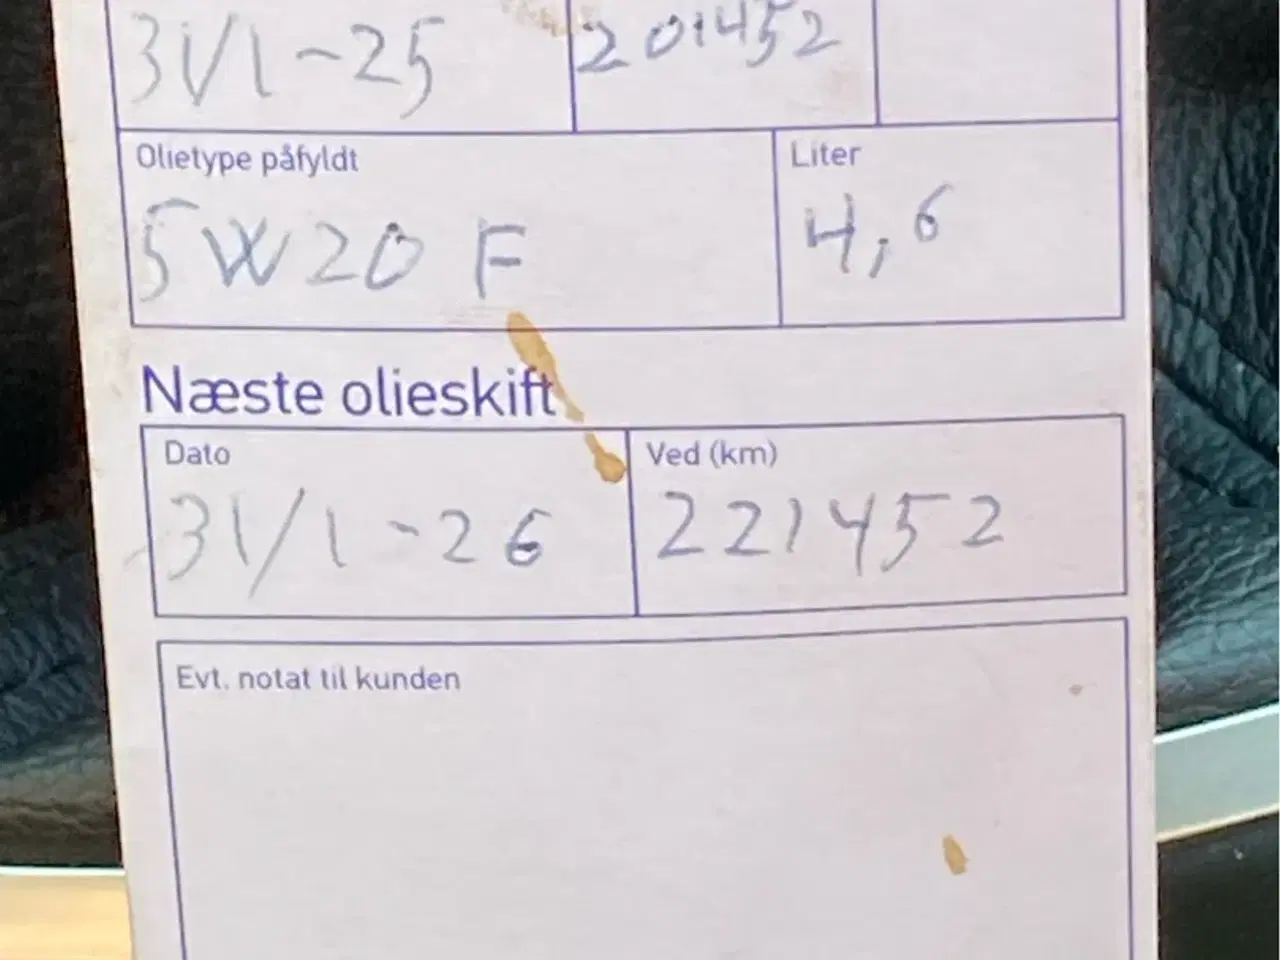 31/1-25 201452
Olietype påfyldt Liter
5W20 F 4,6
Næste olieskift
Dato Ved (km)
31/1-26 221452
Evt. notat til kunden